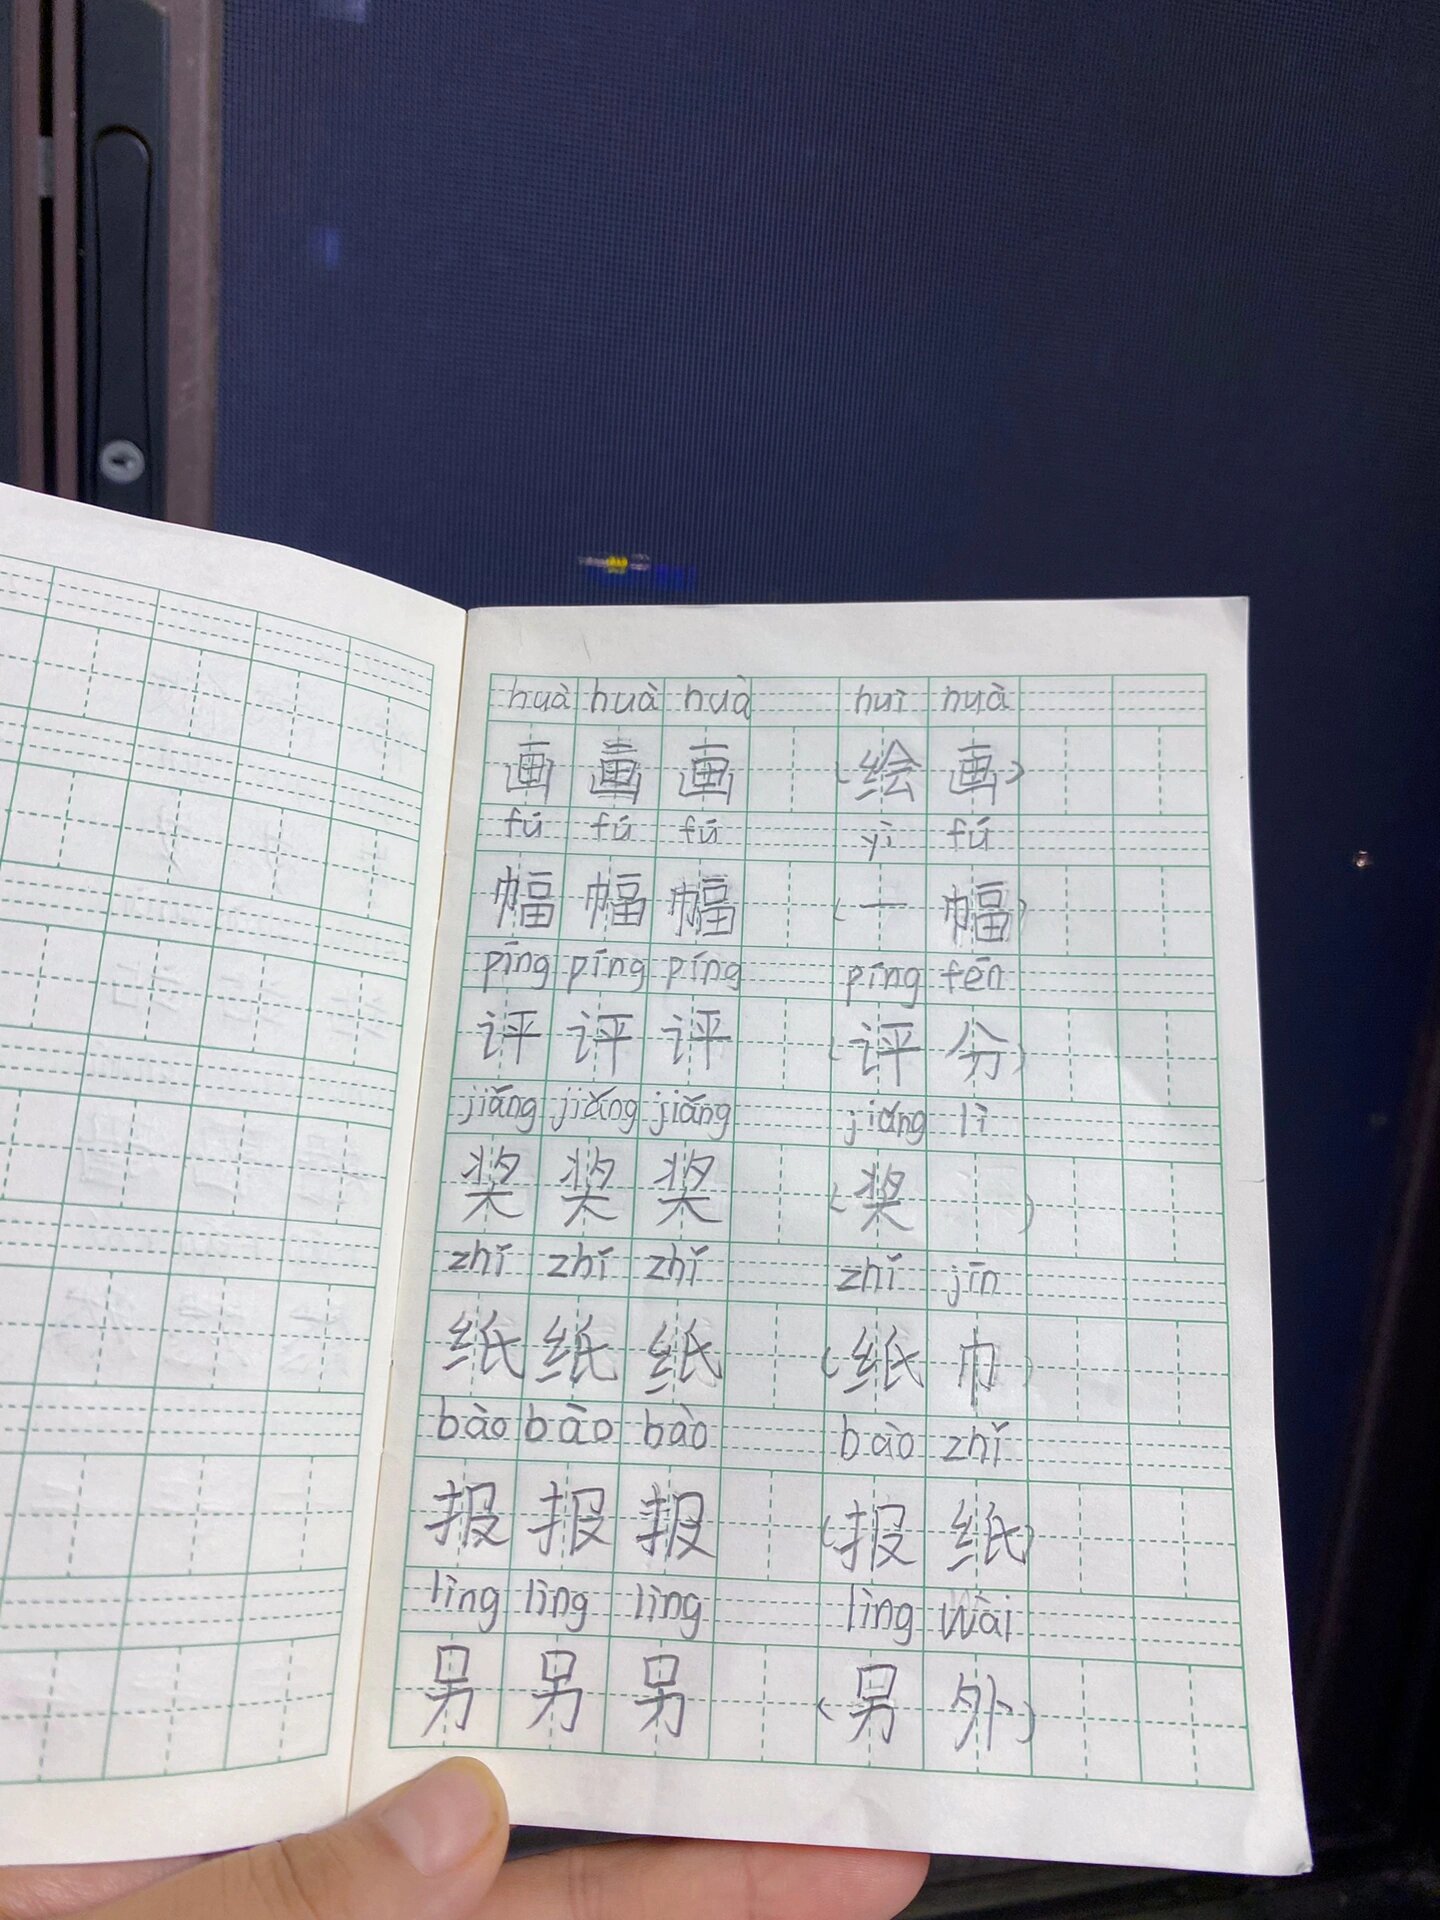 huà huà huà huì huà
画 画 画 (绘 画)
fú fú fú yì fú
幅 幅 幅 (一 幅)
píng píng píng píng fēn
评 评 评 (评 分)
jiǎng jiǎng jiǎng jiǎng lì
奖 奖 奖 (奖 )
zhǐ zhǐ zhǐ zhǐ jīn
纸 纸 纸 (纸 巾)
bào bào bào bào zhǐ
报 报 报 (报 纸)
lìng lìng lìng lìng wài
另 另 另 (另 外)